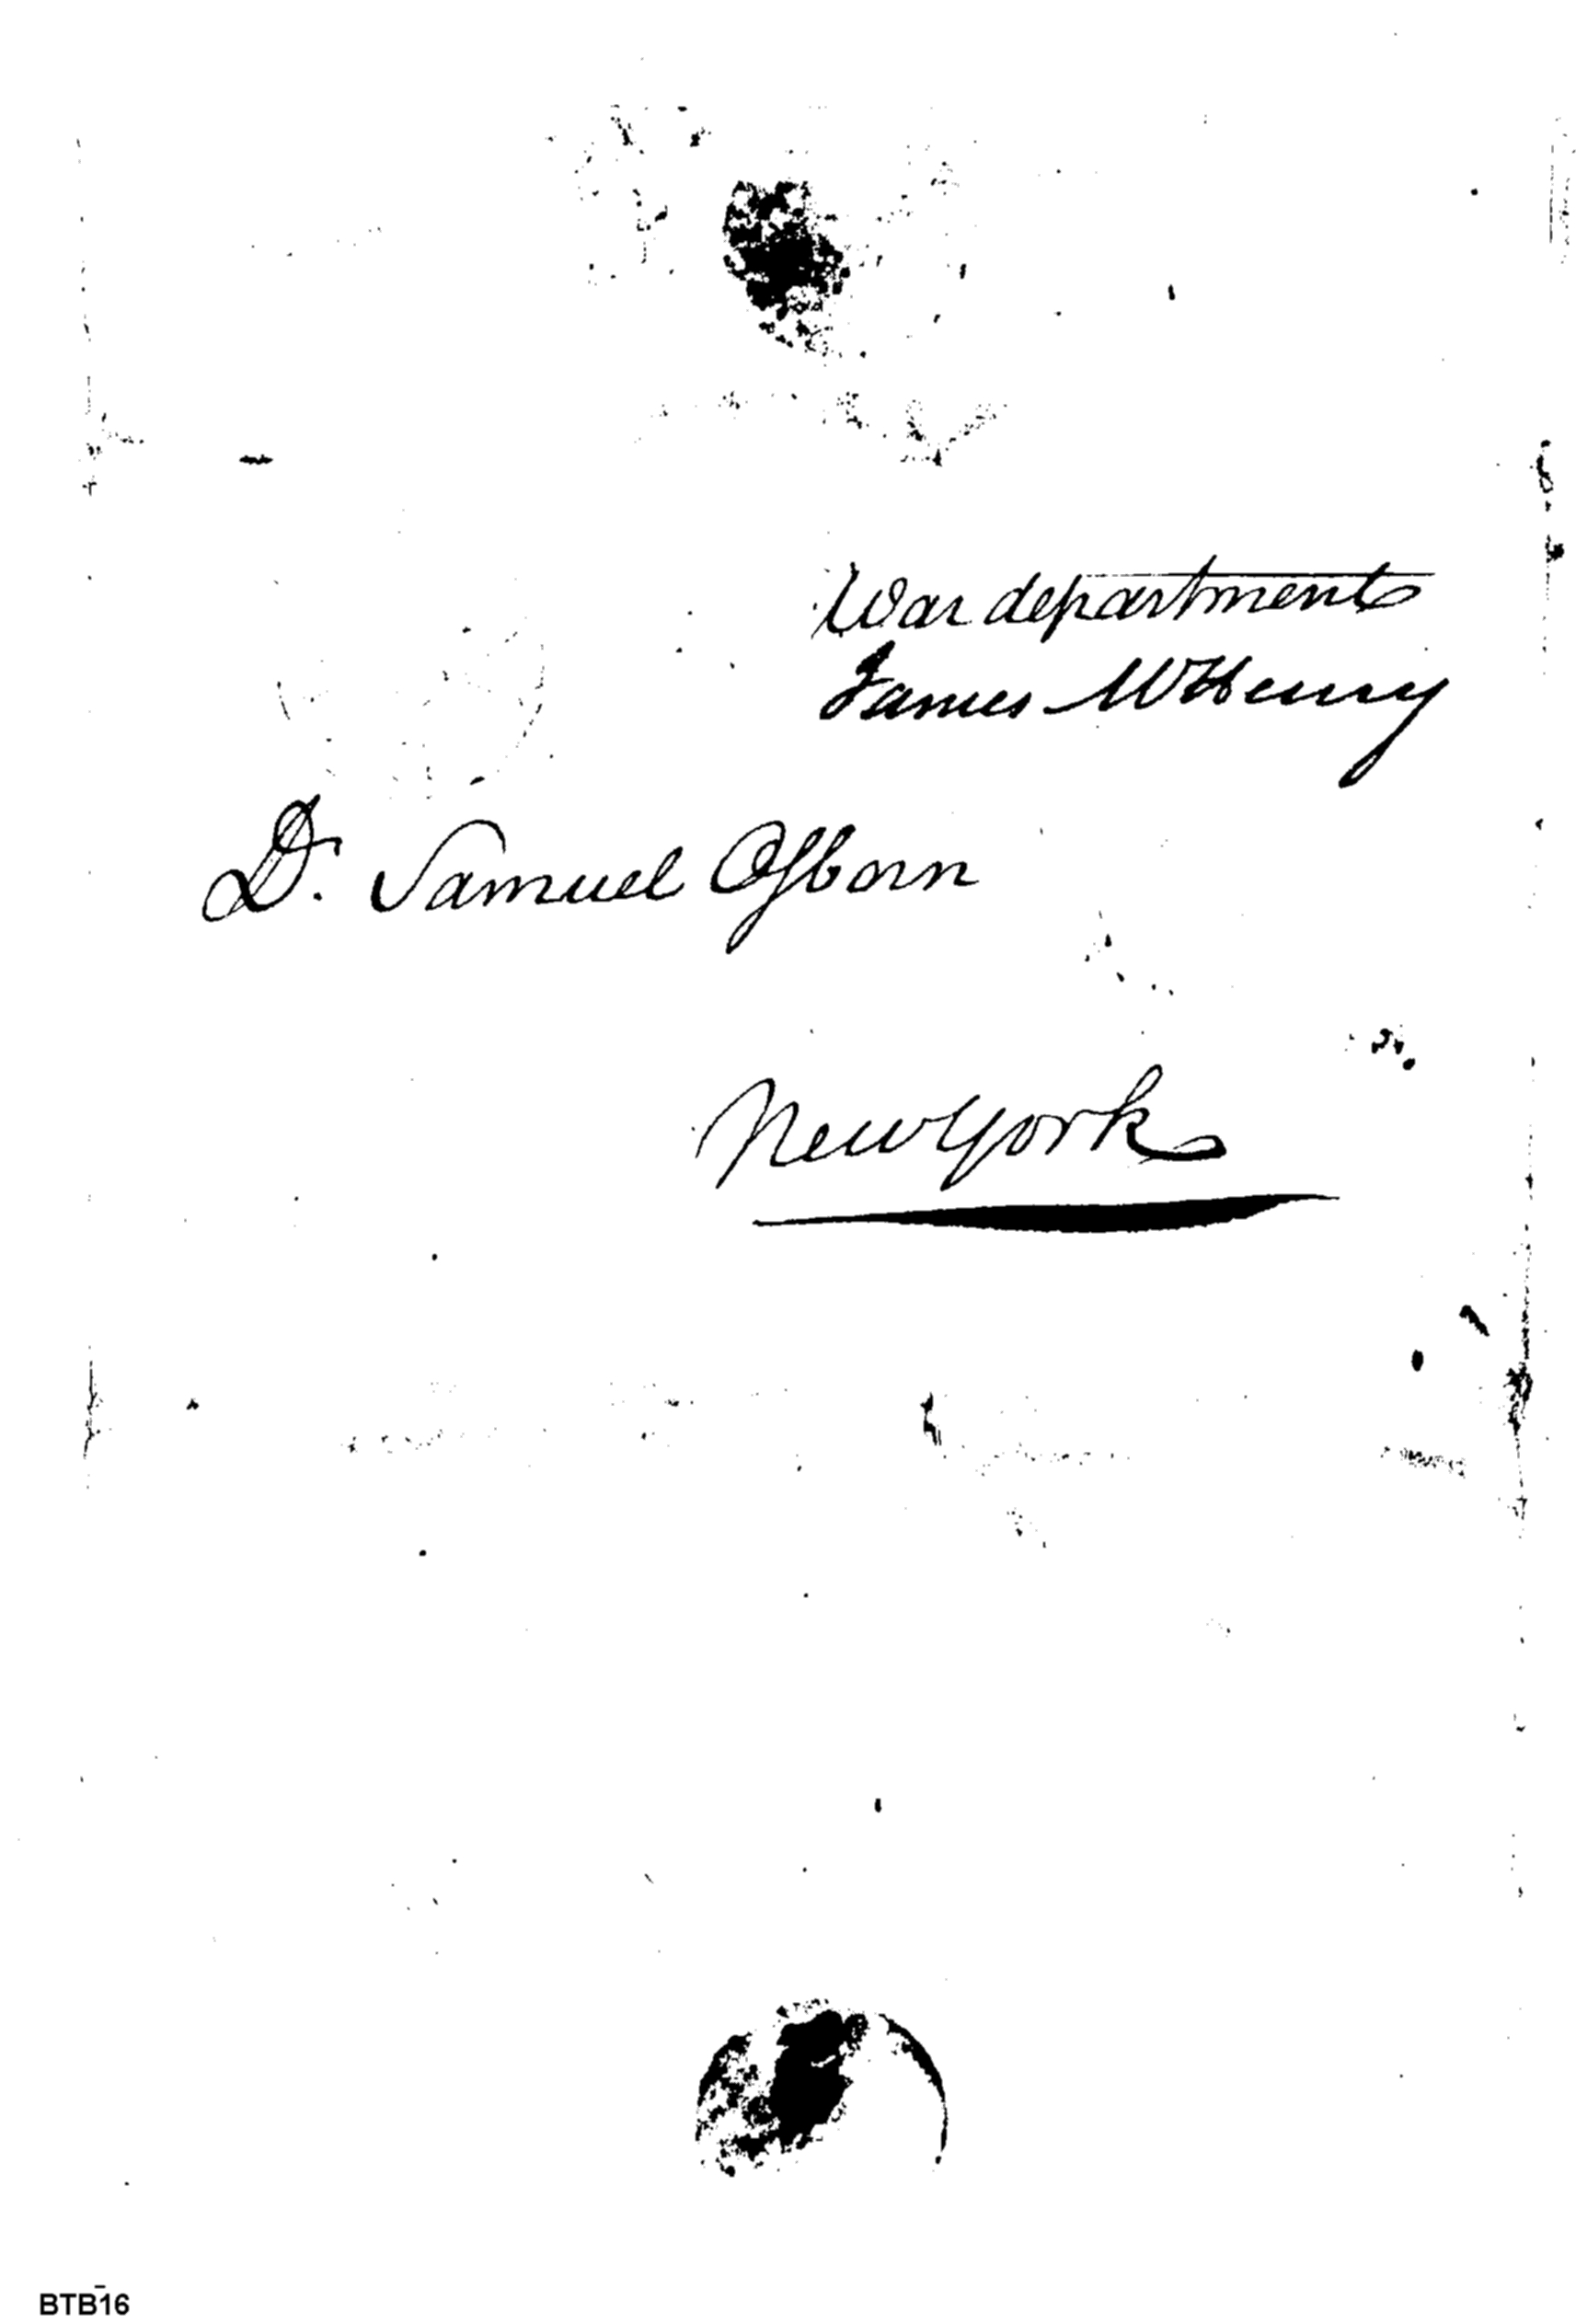 War department
James McHenry
Dr. Samuel Osborn
New York
BTB16